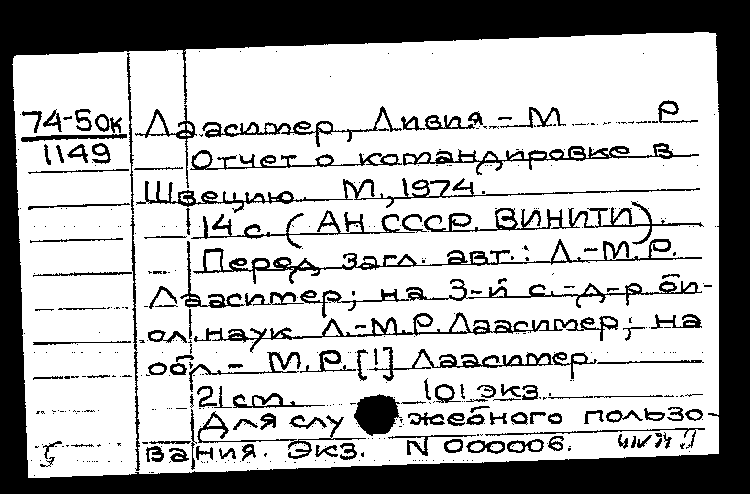 74-5ок Лааситер, Ливия-М Р
1149 Отчет о командировке в
Швецию. М., 1974.
14 с. (АН СССР. ВИНИТИ).
Перед загл. авт.: Л.-М.Р.
Лааситер; на 3-й с.-д-р би-
ол. наук Л.-М.Р. Лааситер; на
обл.- М.Р. [!] Лааситер.
21 см. 101 экз.
Для служебного пользо-
вания. Экз. N 000006.